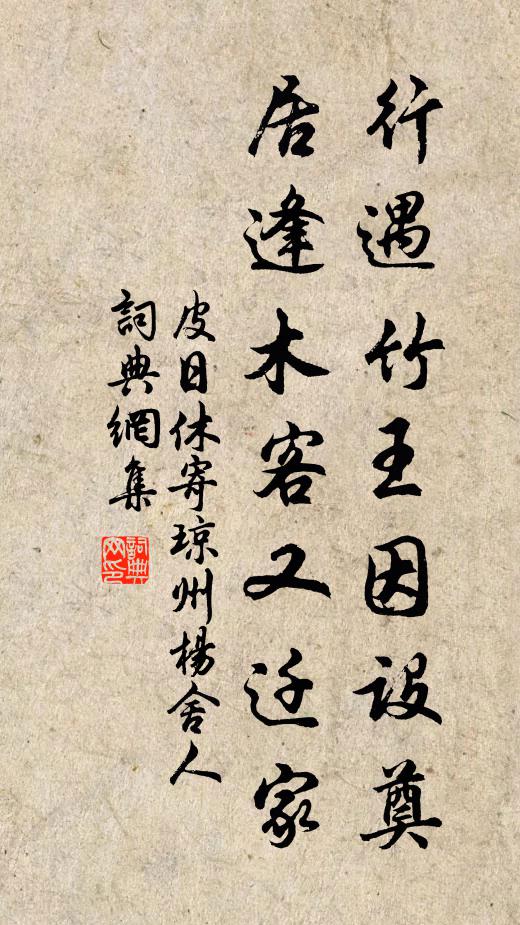 行遇竹王因设奠
居逢木客又迁家
皮日休寄琼州楊舍人
詞典網集
詞典网印